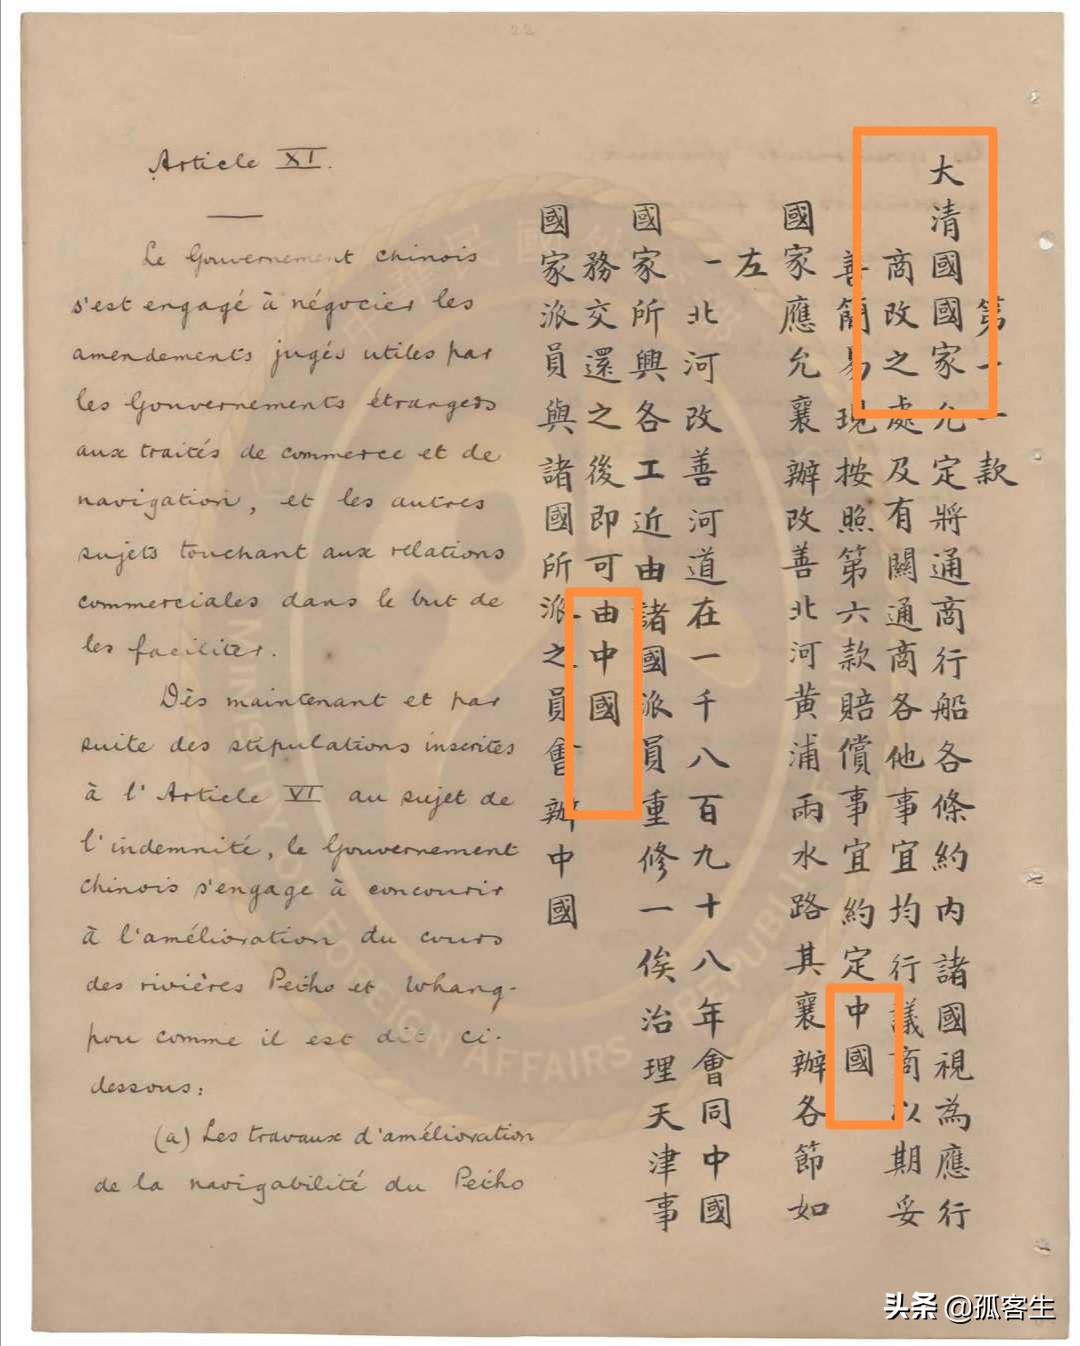 22
Article XI.
Le Gouvernement chinois
s'est engagé à négocier les
amendements jugés utiles par
les Gouvernements étrangers
aux traités de commerce et de
navigation, et les autres
sujets touchant aux relations
commerciales dans le but de
les faciliter.
Dès maintenant et par
suite des stipulations inscrites
à l'Article VI au sujet de
l'indemnité, le Gouvernement
chinois s'engage à concourir
à l'amélioration du cours
des rivières Peiho et Whang-
pou comme il est dit ci-
dessous:
(a) Les travaux d'amélioration
de la navigabilité du Peiho
第十一款
大清國國家允定將通商行船各條約內諸國視為應行
商改之處及有關通商各他事宜均行議商以期妥
善簡易現按照第六款賠償事宜約定中國
國家應允襄辦改善北河黃浦兩水路其襄辦各節如
左
一北河改善河道在一千八百九十八年會同中國
國家所興各工近由諸國派員重修一俟治理天津事
務交還之後即可由中國
國家派員與諸國所派之員會辦中國
MINISTRY OF FOREIGN AFFAIRS REPUBLIC
头条 @孤客生